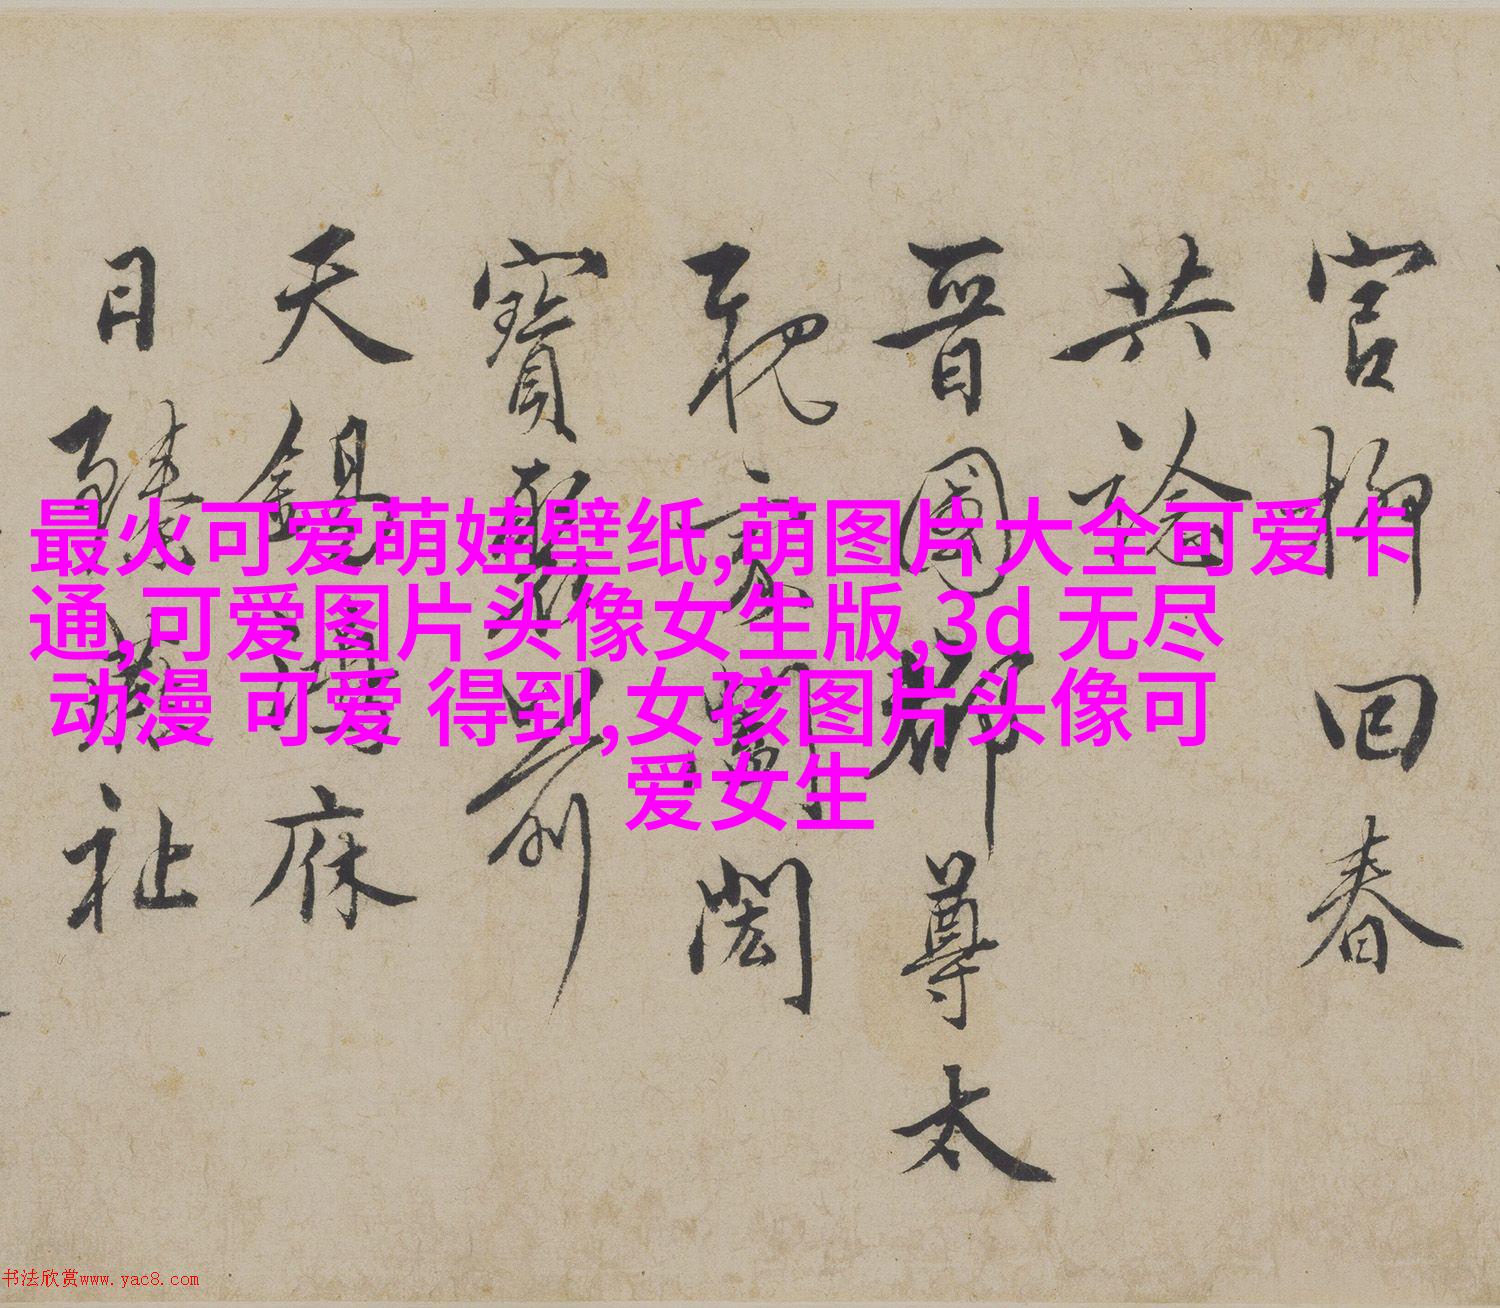 最火可爱萌娃壁纸,萌图片大全可爱卡
通,可爱图片头像女生版,3d 无尽
动漫 可爱 得到,女孩图片头像可
爱女生
官柳回春
共論
晉國尊太
閎
寶
天錫庥
日臻祉
书法欣赏www.yac8.com